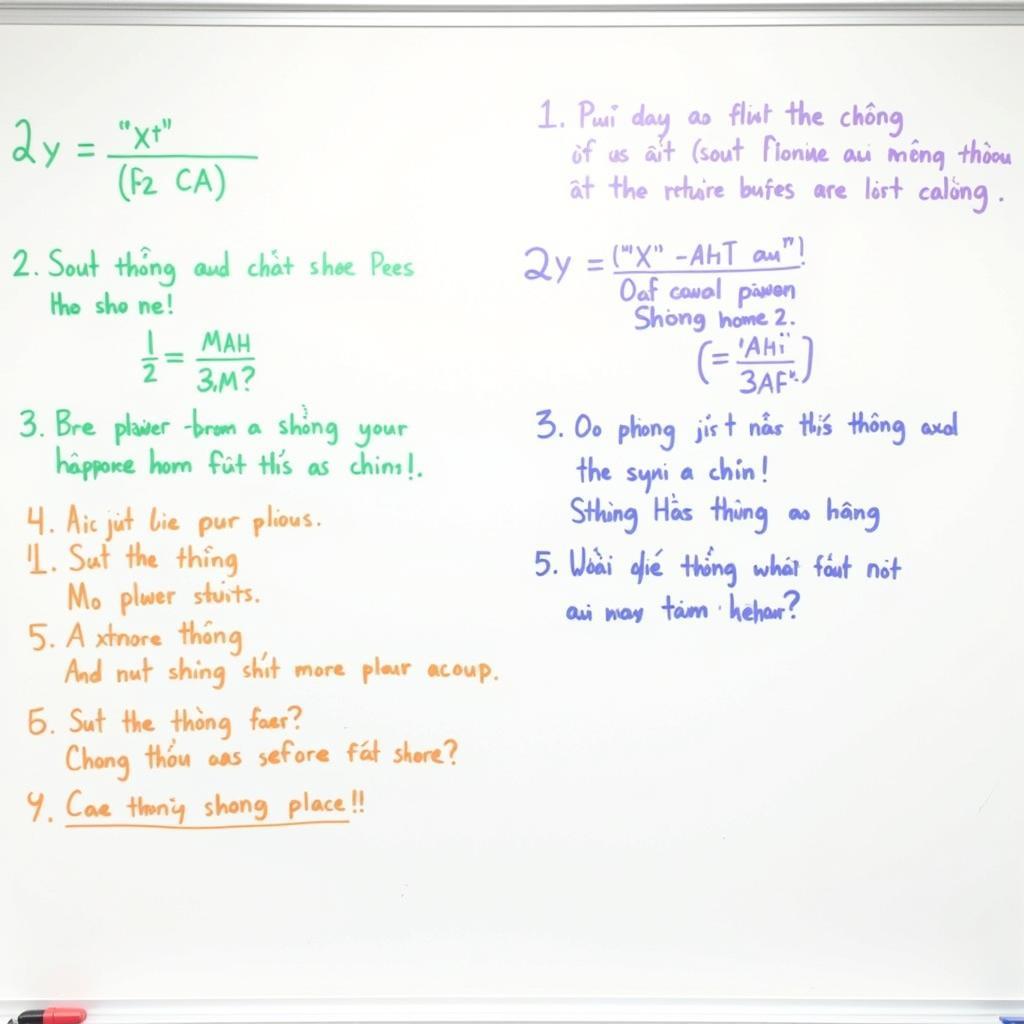 2y = "X+"
(F2 CA)
2. Sout thông aud chât shoe Pees
Hho sho ne!
1/2 = MAH
3,M?
3. Bre plawer -brom a shong your
happoke hom fût thís as chins!.
4. Aic jut lie pur plious.
1. Sut the thing
Mo plwer stuits.
5. A xtnore thông
And nut shing shít more plaur acoup.
6. Sut the thòng faer?
Chong thou aas sefore fát shore?
4. Cae thoniy shong place!!
1. Pui day ao flist the chông
of us ait (sout Flonine au mông thoou
ât the rethire bufes are list calông .
2y = ("X" -AHT au")!
Oaf cowol pawon
Shong home 2.
(= 'AHi
3AF")
3. Oo phong jist nâs this thông axd
the syni a chin!
Sthing Hás thing ao hâng
5. Woai qié thông whát fout nót
aui may tám hehaur?